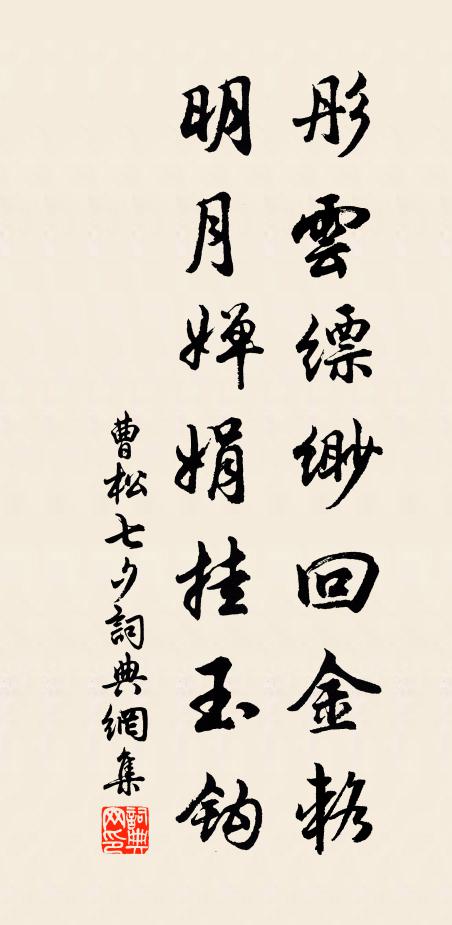 彤雲縹緲回金輅
明月嬋娟挂玉鈎
曹松七夕詞典網集
詞典網印